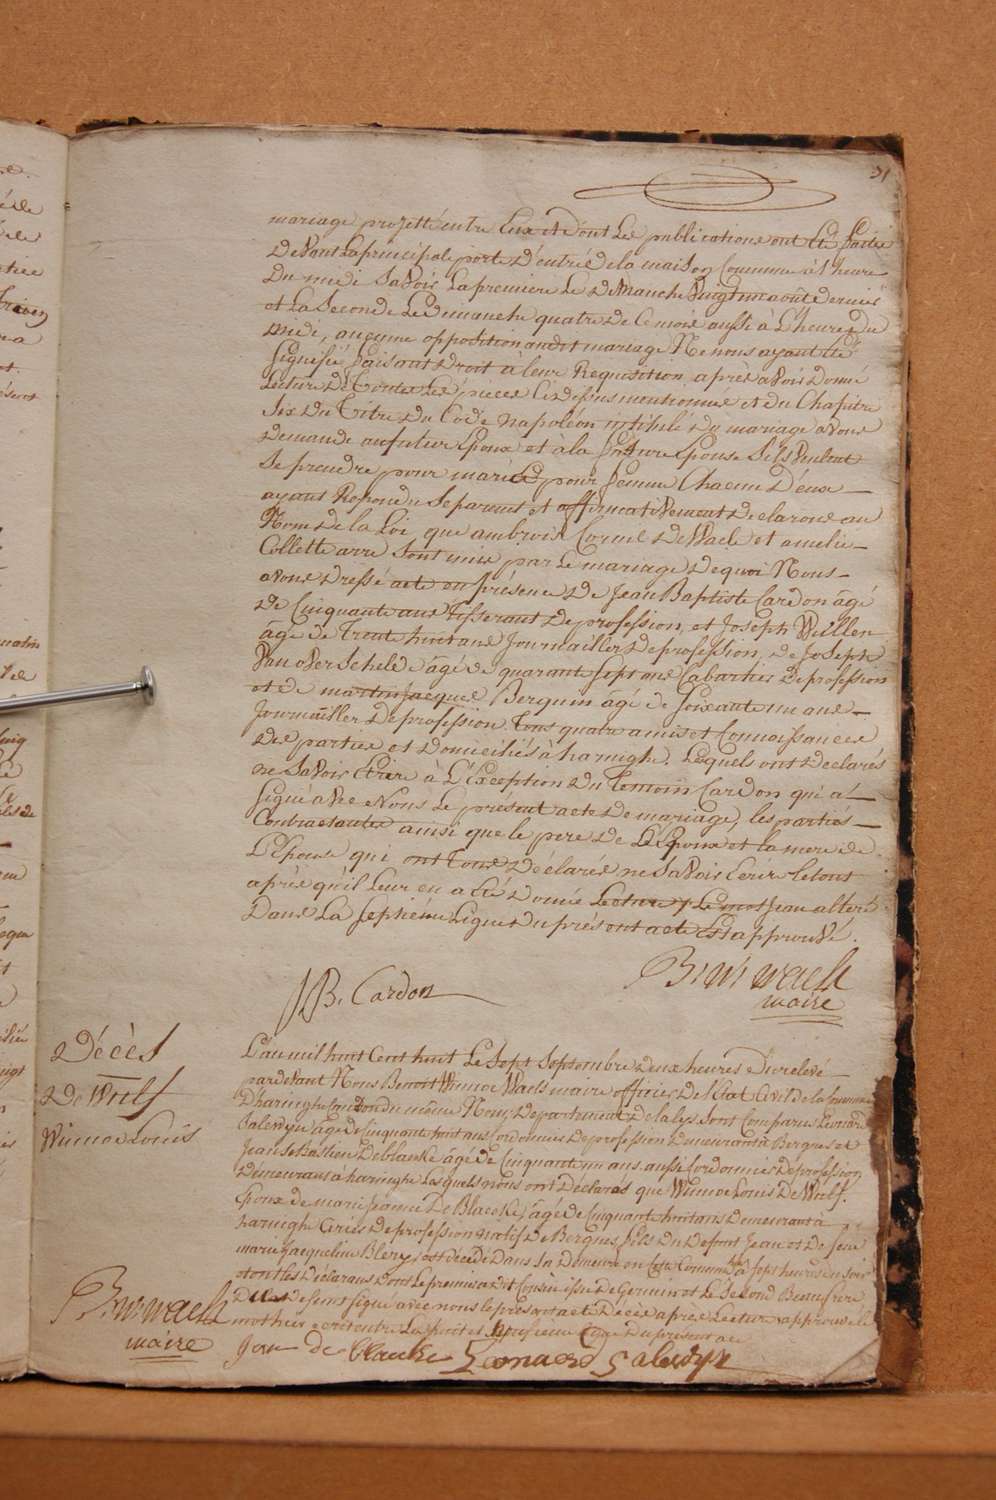 31
mariage projetté entre Eux et dont Les publications ont été faites
devant La principale porte d'entrée de la maison Commune à l'heure
du midi Savoir La premiere Le dimanche Vingt un août dernier
et La Seconde Le dimanche quatre de Ce mois aussi à L'heure du
midi, aucune opposition audit mariage Ne nous ayant été
Signifié, faisant droit à leur Requisition, après avoir donné
Lecture de Toutes Les pièces Ci dessus mentionnés et du Chapitre
Six du Titre du Code Napoléon intitulé du mariage avons
demandé au futur Epoux et à la future Epouse S'ils Veulent
Se prendre pour mari et pour femme Chacun d'eux
ayant Repondu Séparement et affirmativement declarons au
Nom de la Loi que ambroix Cornil De Waele et amelie
Collette arre Sont unis par Le mariage de quoi Nous
avons dressé acte en présence de Jean Baptiste Cardon âgé
de Cinquante ans Tisserant de profession, et Joseph Willen
âgé de Trente huit ans Journaillier de profession, de Joseph
Van overschelde âgé de quarante sept ans Cabartier de profession
et de martin Jacques Berquin âgé de soixante un ans
Journaillier de profession Tous quatre amis et Connaissances
des parties et domiciliés à haringhe. Lesquels ont declarés
ne Savoir Ecrire à L'Exception du Temoin Cardon qui a
Signé avec Nous Le présent acte de mariage, les partiés
Contractantes ainsi que le pere de L'Epoux et la mere de
L'Epouse qui ont Tous déclarés ne Savoir Ecrire le tout
après qu'il Leur en a été donné Lecture / Le mot Jean alteré
dans La septiéme Ligne du présent acte Est approuvé.
B: W: Waels
maire
JB. Cardon
Décès
De Wulf
Winnoc Louis
L'an mil huit Cent huit Le Sept Septembre deux heures de relevé
pardevant Nous Benoit Winnoc Waels maire officier de l'Etat Civil de la Commune
D'haringhe Canton du même Nom, Departement de la lys Sont Comparus Leonard
Salendyn âgé de Cinquante huit ans Cordonnier de profession demeurant à Bergues et
Jean Sebastien Deblaucke âgé de Cinquante un ans aussi Cordonnier de profession
demeurant à haringhe Lesquels nous ont déclarés que Winnoc Louis De Wulf.
Epoux de marie Jeanne De Blaecke, âgé de Cinquante huit ans demeurant à
haringhe Cirier de profession natif de Bergues, fils du defunt Jean et de feue
marie Jacqueline Blery, est décédé dans Sa demeure en Cette Commune à Sept heures du Soir
et ont les déclarans dont Le premier a dit Cousin issu de Germain et Le Second Beau frere
du defunt signé avec nous le présent acte de décés après Lecture approuvé le
mot hier ecrit entre La huit et Neuvieme Ligne du présent acte
B: W: Waels
maire
Jean de Blaucke Leonard Salendyn